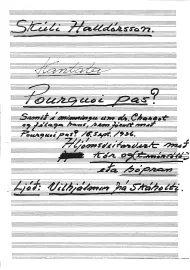 Skúli Halldórsson.
Kantata
Pourquoi pas?
Samið í minningu um dr. Charcot
og félaga hans, sem fórust með
Pourquoi pas? 16. sept. 1936.
Hljómsveitarverk með
kór og
eða sópran
Ljóð: Vilhjálmur frá Skáholti.